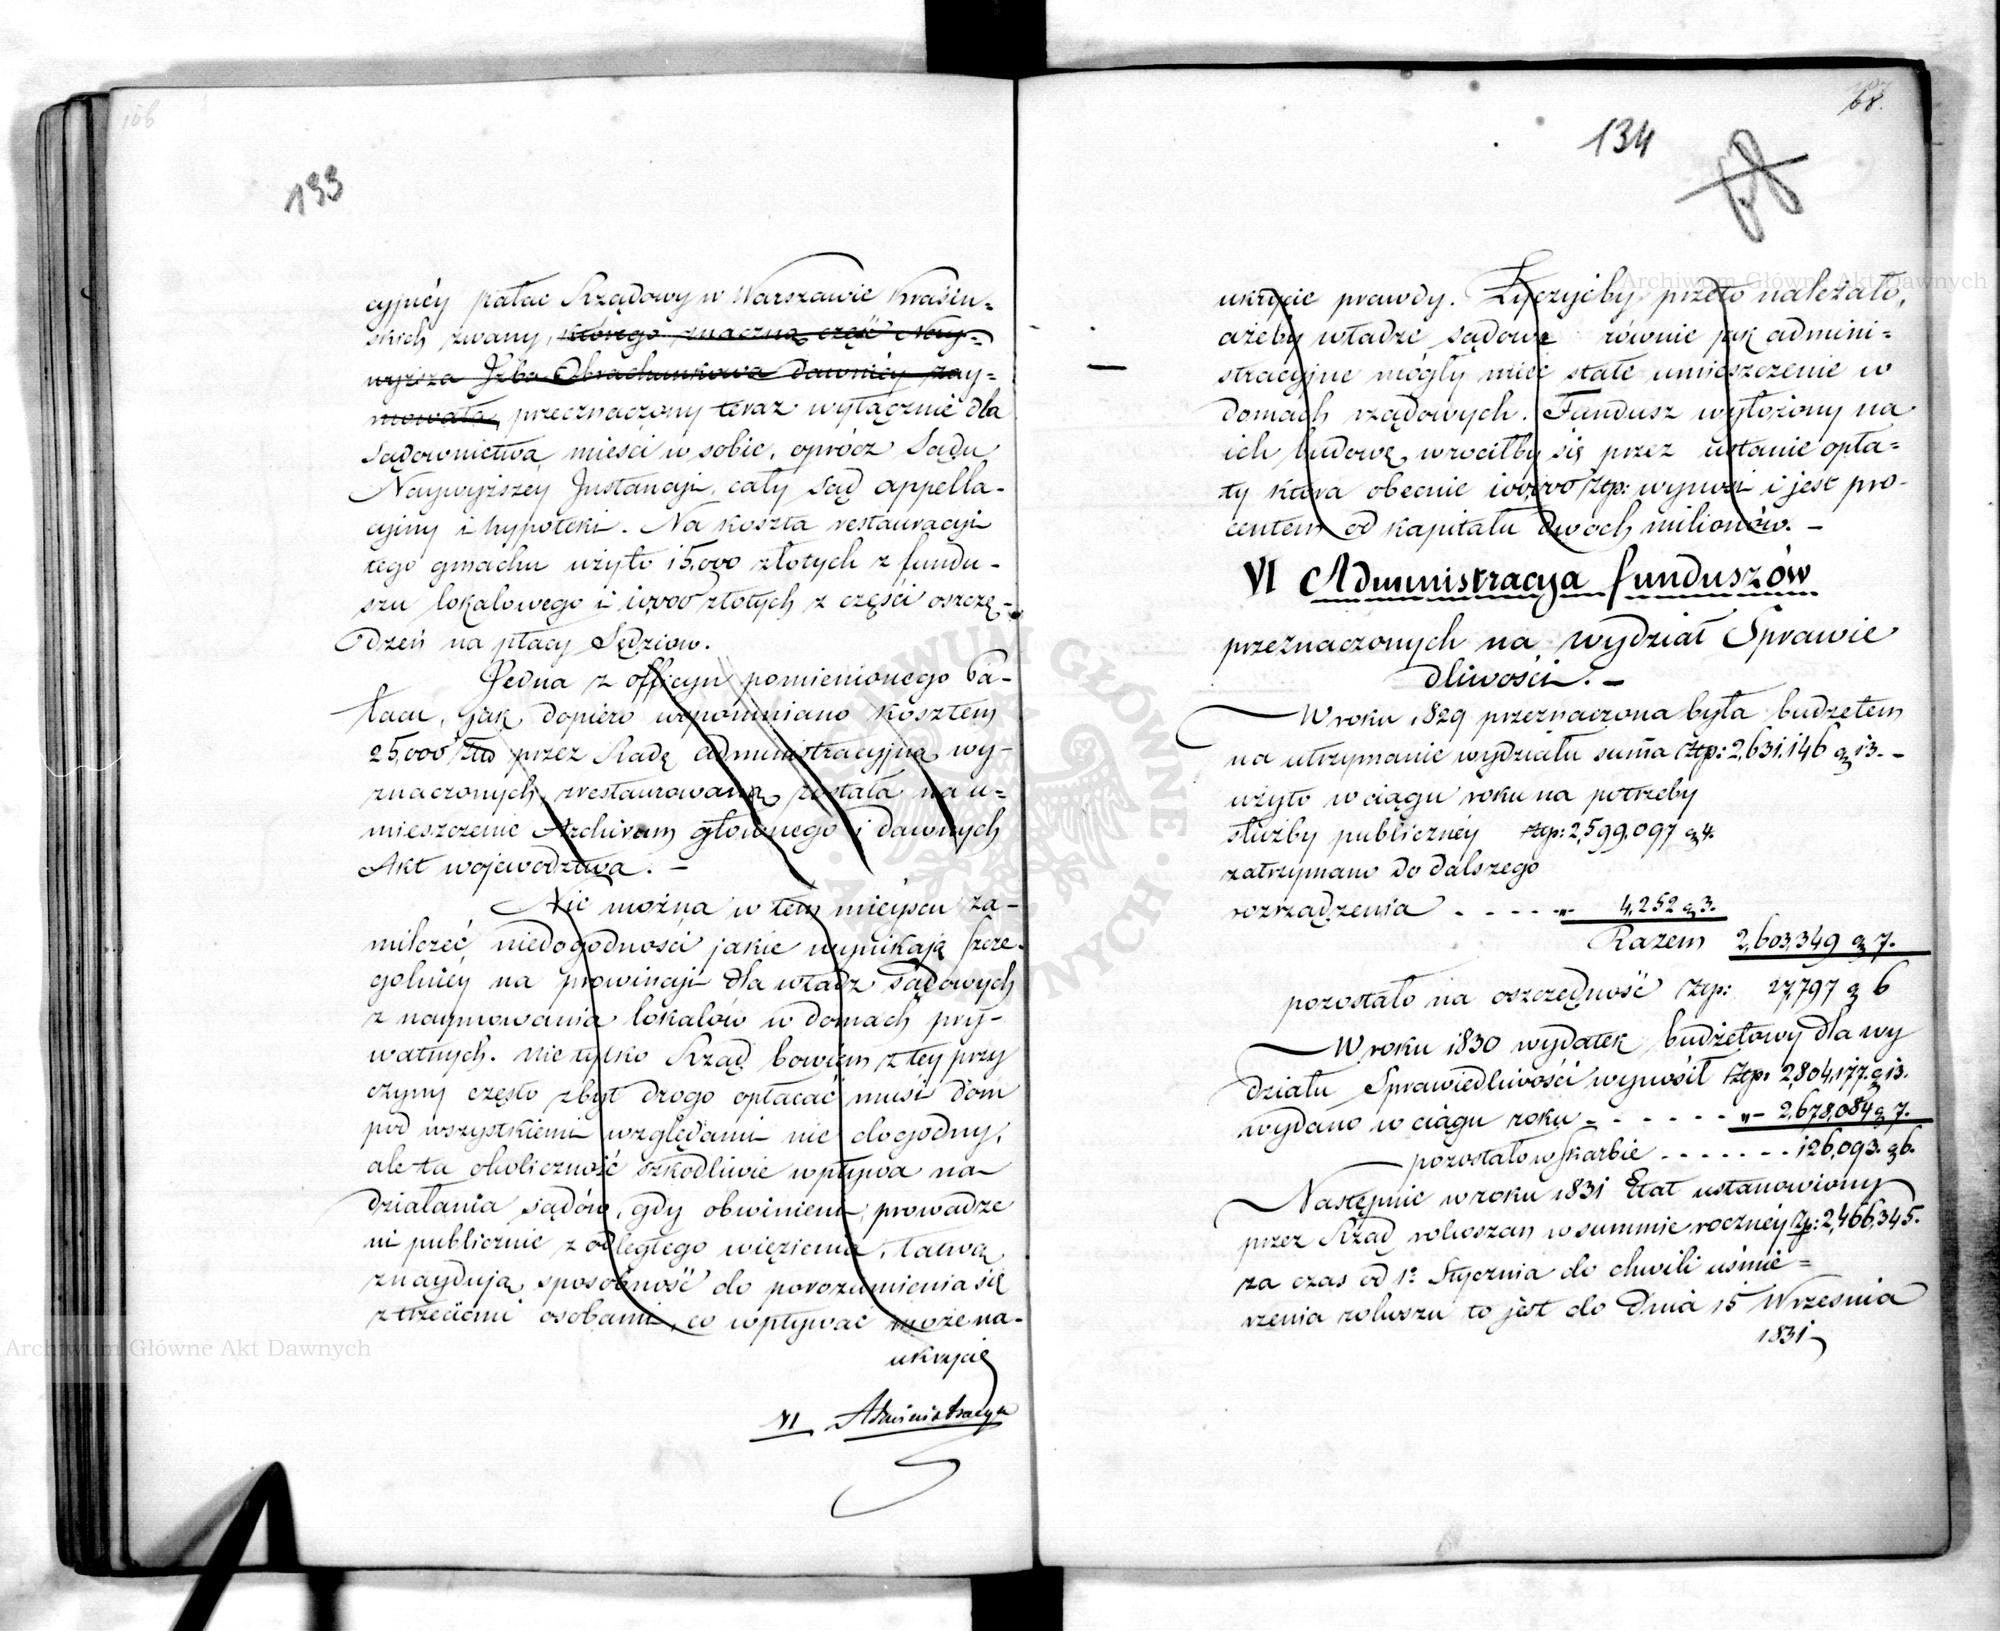 166
133
cyjnéy pałac Rządowy w Warszawie Krasiń=
skich zwany, którego znaczną część Nay=
wyższa Izba Obrachunkowa dawniéy zay=
mowała, przeznaczony teraz wyłącznie dla
Sądownictwa mieści w sobie, oprócz Sądu
Naywyższey Instancji, cały Sąd appella-
cyjny i hypoteki. Na koszta restauracyi
tego gmachu użyto 15,000 złotych z fundu-
szu lokalowego i 10,000 złotych z części oszczę-
dzeń na płacy Sędziów.
Jedna z officyn pomienionego Pa-
łacu, jak dopiero wspomniano kosztem
25,000 Złto przez Radę administracyjną wy-
znaczonych, zrestaurowaną została na u=
mieszczenie Archivum głównego i dawnych
Akt województwa. -
Nie można w tem miejscu za-
milczeć niedogodności jakie wynikają szcze-
golniéy na prowincyi dla władz Sądowych
z naymowania lokalów w domach pry-
watnych. Nie tylko Rząd bowiem z tey przy
czyny często zbyt drogo opłacać musi dom
pod wszystkiemi względami nie dogodny,
ale ta okoliczność szkodliwie wpływa na
działania sądów, gdy obwinieni, prowadze
ni publicznie z odległego więzienia, łatwą
znaydują sposobność do porozumienia się
z trzeciemi osobami, co wpływać może na-
ukrycie
VI Administracya
68.
134
ukrycie prawdy. Życzyćby przeto należało,
ażeby władze sądowe równie jak admini=
stracyjne mógły mieć stałe umieszczenie w
domach rządowych. Fundusz wyłożony na
ich budowę, wrociłby się przez ustanie opła=
ty która obecnie 100,000 Złp: wynosi i jest pro-
centem od kapitału dwoch milionów. -
VI Administracya funduszów
przeznaczonych na wydział Sprawie
dliwości. -
W roku 1829 przeznaczona była budżetem
na utrzymanie wydziału suma Złp: 2,631,146 g 13. -
użyto w ciągu roku na potrzeby
służby publicznéy Złp: 2,599,097 g 4.
zatrzymano do dalszego
rozrządzenia . - - - - „- 4,252 g 3.
Razem 2,603,349 g 7.
pozostało na oszczędność Złp: 27,797 g 6
W roku 1830 wydatek budżetowy dla wy
działu Sprawiedliwości wynosił Złp: 2,804,177. g 13.
wydano w ciągu roku - - - - - - „- 2,678,084 g 7.
pozostało w Skarbie - - - - - - - 126,093. g 6.
Następnie w roku 1831 Etat ustanowiony
przez Rząd rokoszan w summie roczney Złp: 2,466,345.
za czas od 1º Stycznia do chwili uśmie=
rzenia rokoszu to jest do Dnia 15 Wrzesnia
1831
Archiwum Główne Akt Dawnych
Archiwum Główne Akt Dawnych
ARCHIWUM GŁÓWNE AKT DAWNYCH